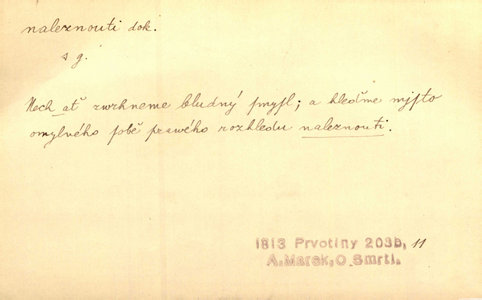 naleznouti dok.
s g.
Nech ať zwrhneme bludný smysl; a hleďme mjsto
omylného sobě prawého rozhledu naleznouti.
1813 Prvotiny 203b, 11
A.Marek, O Smrti.